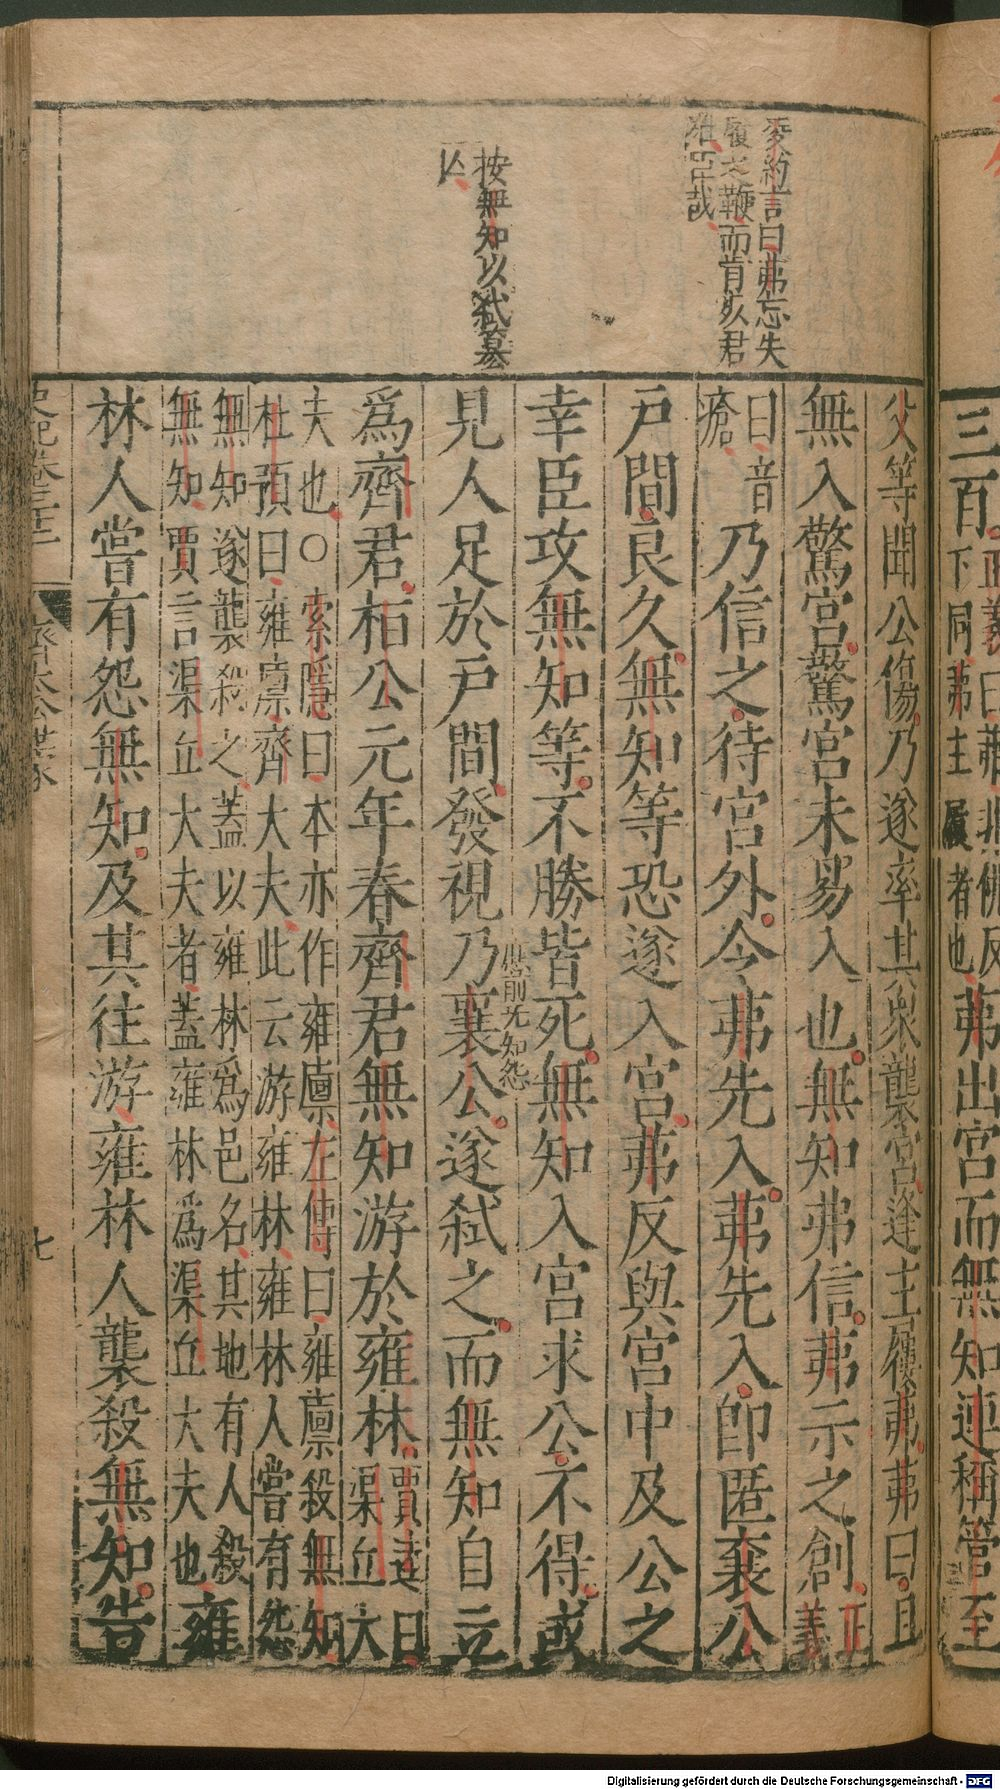 三百
正義曰茀非佛反
下同茀主履者也
茀出宮而無知連稱管至
父等聞公傷乃遂率其衆襲宮逢主屨茀茀曰且
無入驚宮驚宮未易入也無知弗信茀示之創
正義
曰音
瘡
乃信之待宮外令茀先入茀先入即匿襄公
戶間良久無知等恐遂入宮茀反與宮中及公之
幸臣攻無知等不勝皆死無知入宮求公不得或
見人足於戶間發視乃襄公遂弒之而無知自立
應前无知怨
爲齊君桓公元年春齊君無知游於雍林
賈逵曰
渠丘大
夫也○索隱曰本亦作雍廩左傳曰雍廩殺無知
杜預曰雍廩齊大夫此云游雍林雍林人嘗有怨
無知遂襲殺之蓋以雍林爲邑名其地有人殺
無知賈言渠丘大夫者蓋雍林爲渠丘大夫也
雍
林人嘗有怨無知及其往游雍林人襲殺無知告
史記卷三十二
齊太公世家
七
約言曰茀忘失
履之鞭而肯以君
哉
按無知以弒墓
公
Digitalisierung gefördert durch die Deutsche Forschungsgemeinschaft - DFG